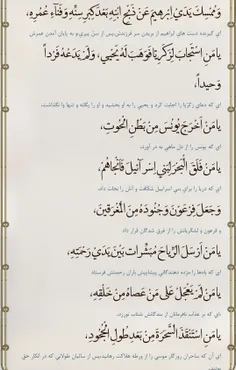 وَمُمْسِكَ يَدَيْ اِبْرهيمَ عَنْ ذَبْحِ ابْنِهِ بَعْدَ كِبَرِ سِنِّهِ وَفَنآءِ عُمُرِهِ،
ای گیرنده دست های ابراهیم از بریدن سر فرزندش پس از سن پیری و به پایان آمدن عمرش
يامَنِ اسْتَجابَ لِزَكَرِيّا فَوَهَبَ لَهُ يَحْيى، وَلَمْ يَدَعْهُ فَرْداً
وَحيداً،
ای که دعای زکریا را اجابت کرد و یحیی را به او بخشید و او را یگانه و تنها وا نگذاشت،
يامَنْ اَخْرَجَ يُونُسَ مِنْ بَطْنِ الْحُوتِ،
ای که یونس را از دل ماهی به در آورد،
يامَنْ فَلَقَ الْبَحْرَ لِبَنى اِسْرآئيلَ فَاَنْجاهُمْ،
ای که دریا را برای بنی اسراییل شکافت و آنان را نجات داد،
وَجَعَلَ فِرْعَوْنَ وَجُنُودَهُ مِنَ الْمُغْرَقينَ،
و فرعون و لشکریانش را از غرق شدگان قرار داد
يامَنْ اَرْسَلَ الرِّياحَ مُبَشِّرات بَيْنَ يَدَيْ رَحْمَتِهِ،
ای که بادها را مژده دهندگانی پیشاپیش باران رحمتش فرستاد
يامَنْ لَمْ يَعْجَلْ عَلى مَنْ عَصاهُ مِنْ خَلْقِهِ،
ای که بر عذاب نافرمانان از بندگانش شتاب نورزد،
يامَنِ اسْتَنْقَذَ السَّحَرَةَ مِنْ بَعْدِ طُولِ الْجُحُودِ،
ای آن که ساحران روزگار موسی را از ورطه هلاکت رهانید پس از سالیان طولانی که در انکار حق